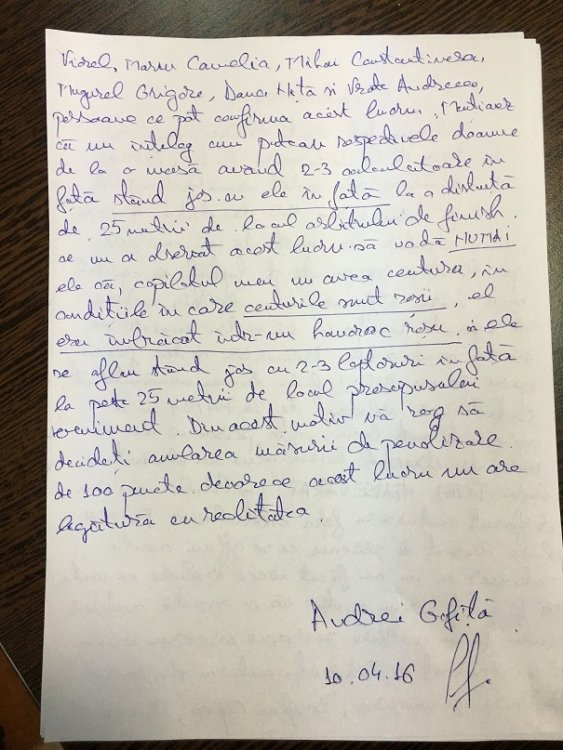 Viorel, Marin Camelia, Mihai Constantinescu,
Mugurel Grigore, Danci Niță și Vrate Andreeea,
persoane ce pot confirma acest lucru. Menționez
că nu înțeleg cum puteau respectivele doamne
de la o masă având 2-3 calculatoare în
față stând jos cu ele în față la o distanță
de 25 metrii de locul arbitrului de finish
ce nu a observat acest lucru să vadă NUMAI
ele că, copilotul meu nu avea centura, în
condițiile în care centurile sunt roșii, el
era îmbrăcat într-un hanorac roșu, și ele
se aflau stând jos cu 2-3 laptopuri în față
la peste 25 metrii de locul presupusului
eveniment. Din acest motiv vă rog să
decideți anularea măsurii de penalizare
de 100 puncte deoarece acest lucru nu are
legătură cu realitatea.
Andrei
10.04.16